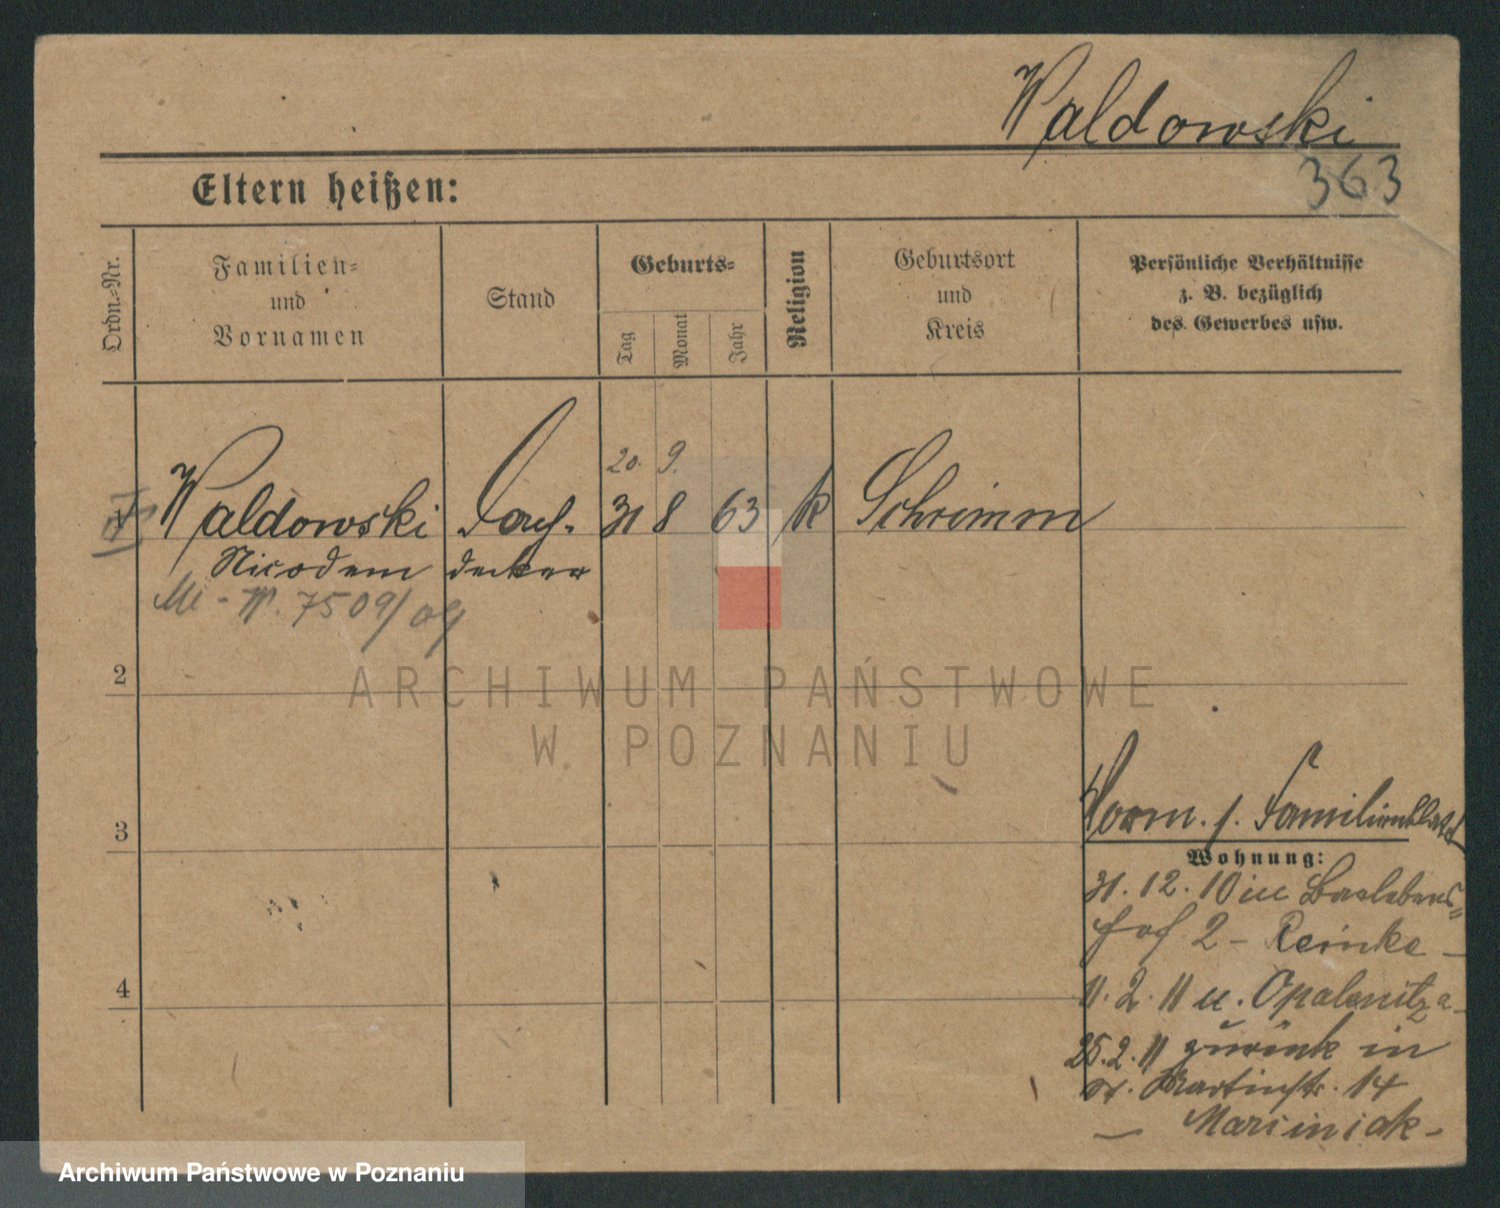 Waldowski
363
Eltern heißen:
Ordn.-Nr.
Familien- und Vornamen
Stand
Geburts-
Tag
Monat
Jahr
Religion
Geburtsort und Kreis
Persönliche Verhältnisse z. B. bezüglich des Gewerbes usw.
20. 9.
1 Waldowski Dach- 31 8 63 k Schrimm
Nicodem decker
7509/09
2
3
4
Vorm. s. Familienblatt
Wohnung:
31. 12. 10 in
hof 2 - Reinke -
11. 2. 11 u. Opalenitza
25. 2. 11 zurück in
St. Martinstr. 14
- Marciniak -
ARCHIWUM PAŃSTWOWE
W POZNANIU
Archiwum Państwowe w Poznaniu